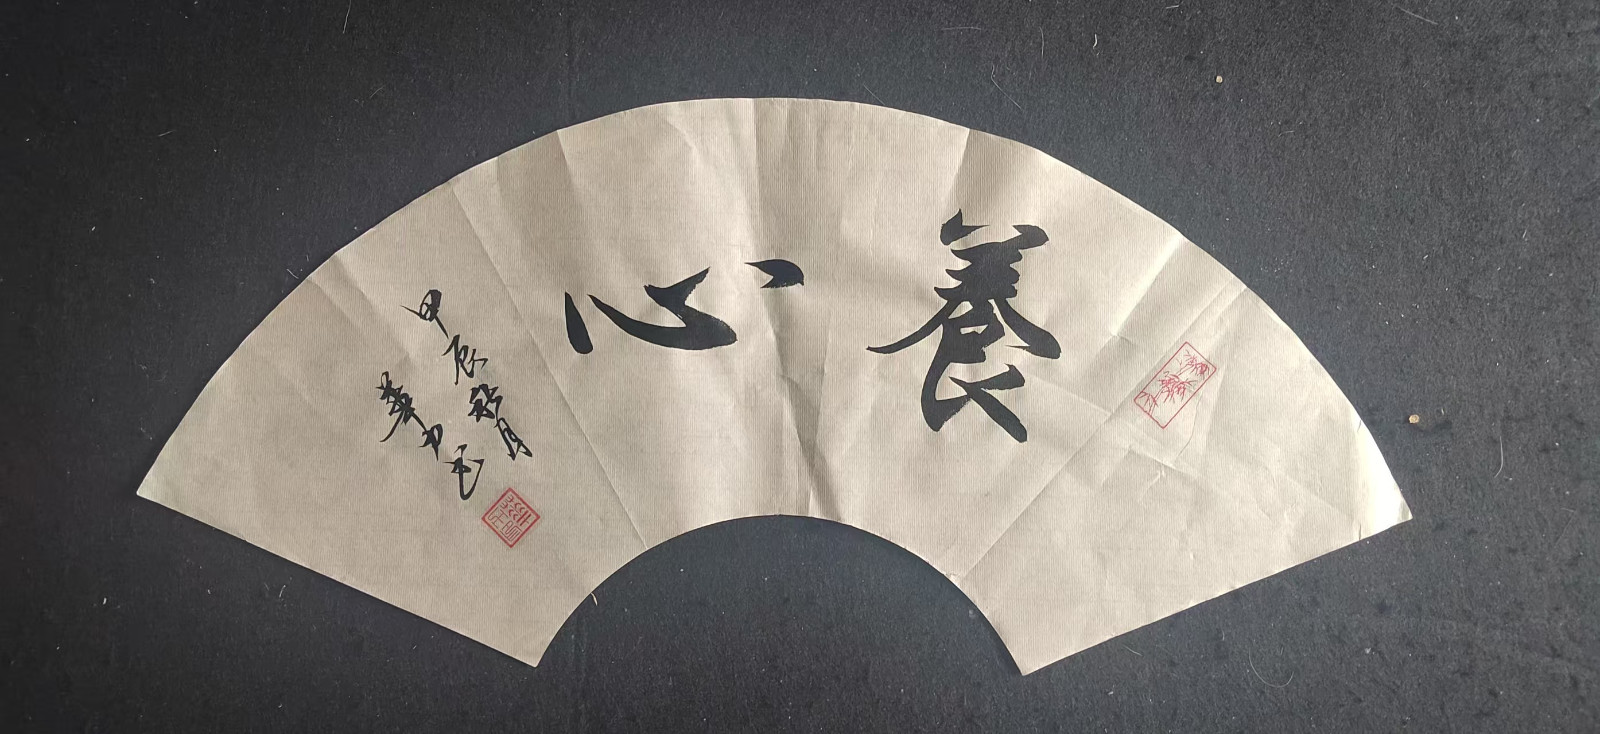 養心
甲辰秋月
華中書